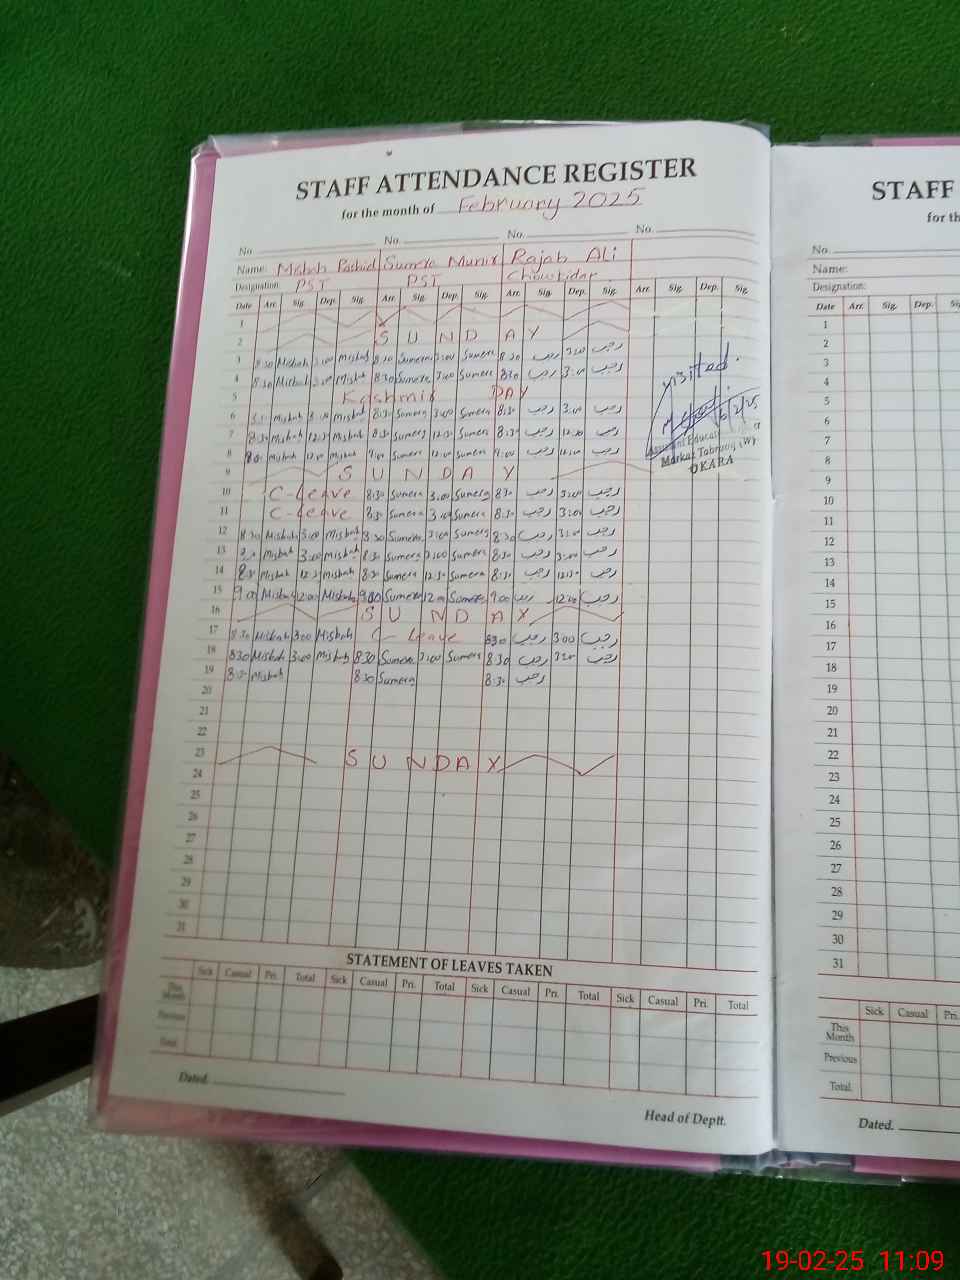 STAFF ATTENDANCE REGISTER
for the month of February 2025
No. No. No. No.
Name: Misbah Rashid Sumera Munir Rajab Ali
Designation: PST PST Chowkidar
Date Arr. Sig. Dep. Sig. Arr. Sig. Dep. Sig. Arr. Sig. Dep. Sig. Arr. Sig. Dep. Sig.
1
2 SUNDAY
3 8:30 Misbah 3:00 Misbah 8:30 Sumera 3:00 Sumera 8:30 رجب 3:00 رجب
4 8:30 Misbah 3:00 Misbah 8:30 Sumera 3:00 Sumera 8:30 رجب 3:00 رجب
5 Kashmir DAY
6 Misbah 3:00 Misbah 8:30 Sumera 3:00 Sumera 8:30 رجب 3:00 رجب
7 8:30 Misbah 12:30 Misbah 8:30 Sumera 12:30 Sumera 8:30 رجب 12:30 رجب
8 Misbah 12:00 Misbah 9:00 Sumera 12:00 Sumera 9:00 رجب 12:00 رجب
9 SUNDAY
10 C-Leave 8:30 Sumera 3:00 Sumera 8:30 رجب 3:00 رجب
11 C-Leave 8:30 Sumera 3:00 Sumera 8:30 رجب 3:00 رجب
12 8:30 Misbah 3:00 Misbah 8:30 Sumera 3:00 Sumera 8:30 رجب 3:00 رجب
13 Misbah 3:00 Misbah 8:30 Sumera 3:00 Sumera 8:30 رجب 3:00 رجب
14 8:30 Misbah 12:30 Misbah 8:30 Sumera 12:30 Sumera 8:30 رجب 12:30 رجب
15 9:00 Misbah 12:00 Misbah 9:00 Sumera 12:00 Sumera 9:00 رجب 12:00 رجب
16 SUNDAY
17 8:30 Misbah 3:00 Misbah C-Leave 8:30 رجب 3:00 رجب
18 8:30 Misbah 3:00 Misbah 8:30 Sumera 3:00 Sumera 8:30 رجب 3:00 رجب
19 8:30 Misbah 8:30 Sumera 8:30 رجب
20
21
22
23 SUNDAY
24
25
26
27
28
29
30
31
visited.
6/2/25
Assistant Educati
Markaz Tabruq (W)
OKARA
STATEMENT OF LEAVES TAKEN
Sick Casual Pri. Total Sick Casual Pri. Total Sick Casual Pri. Total Sick Casual Pri. Total
This Month
Previous
Total
Dated.
Head of Deptt.
STAFF
for th
No.
Name:
Designation:
Date Arr. Sig. Dep.
1
2
3
4
5
6
7
8
9
10
11
12
13
14
15
16
17
18
19
20
21
22
23
24
25
26
27
28
29
30
31
Sick Casual Pri.
This Month
Previous
Total
Dated.
19-02-25 11:09